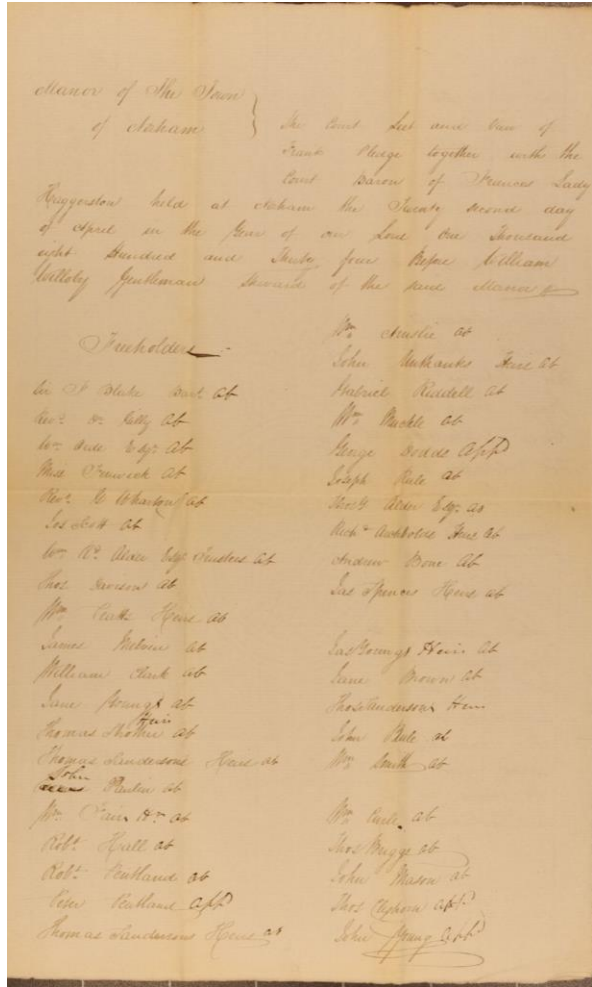 Manor of The Town
of Norham
The Court Leet and View of
Frank Pledge together with the
Court Baron of Frances Lady
Haggerston held at Norham the Twenty second day
of April in the Year of our Lord One Thousand
eight Hundred and Thirty four Before William
Willoby Gentleman Steward of the said Manor
Freeholders
Sir F Blake Bart. ab
Revd. Dr. Gilly ab
Wm. Esqr. ab
Miss Fenwick ab
Revd. Wharton ab
Jos Scott ab
Wm. Alder Esqr. Trustees ab
Thos Davison ab
Wm. Heirs ab
James Melvin ab
William Clark ab
Jane Young ab
Thomas Strother Heir ab
Thomas Sandersons Heirs ab
John ab
Wm. Fair ab
Robt. Hall ab
Robt. Pentland ab
Peter Pentland appd
Thomas Sandersons Heirs ab
Wm. Ainslie ab
John Unthanks Heirs ab
Gabriel Riddell ab
Wm. Muckle ab
George Dodds appd
Joseph Rule ab
Thos. Alder Esqr. ab
Archbolds Heirs ab
Andrew Bone ab
Jas Spences Heirs ab
Jas Youngs Heirs ab
Jane Brown ab
Thos Sandersons Heirs
John Rule ab
Wm. Smith ab
Wm. ab
Thos Briggs ab
John Mason ab
Thos Cleghorn appd
John Young appd